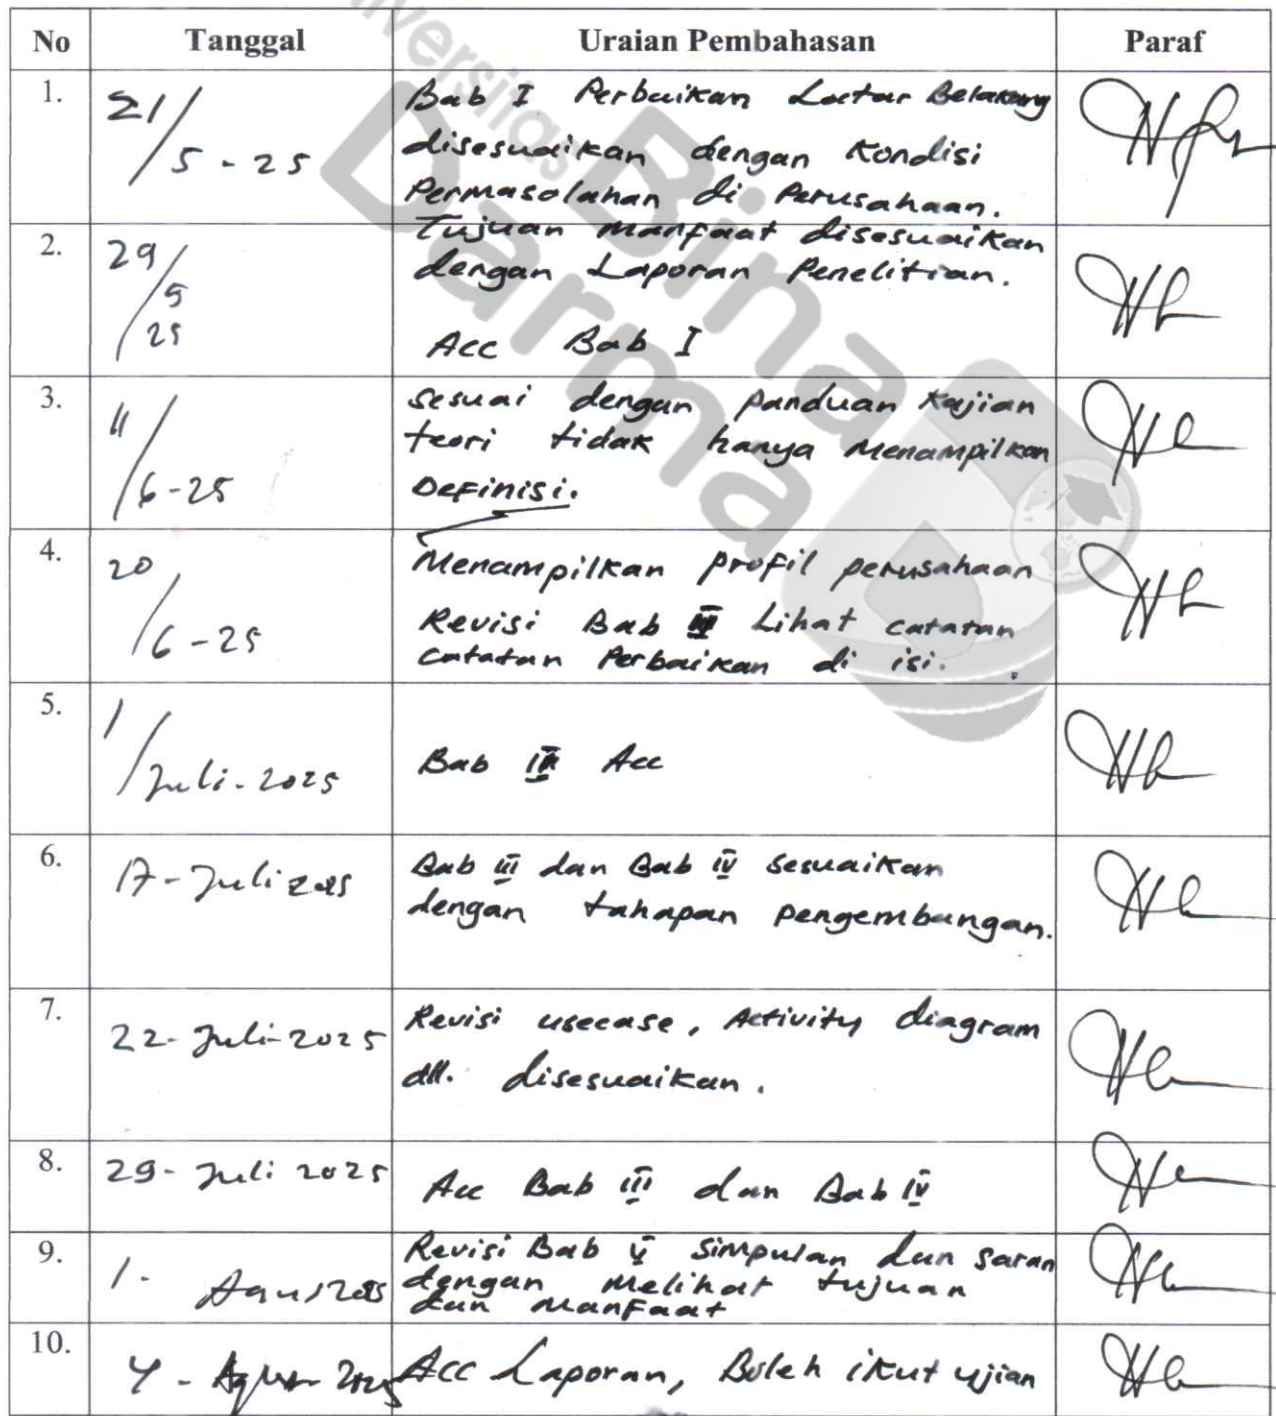 Universitas
Bina
Darma
No Tanggal Uraian Pembahasan Paraf
1. 21/5-25 Bab I Perbaikan Latar Belakang
disesuaikan dengan Kondisi
Permasalahan di Perusahaan.
2. 29/5/25 Tujuan Manfaat disesuaikan
dengan Laporan Penelitian.
Acc Bab I
3. 11/6-25 sesuai dengan panduan Kajian
teori tidak hanya Menampilkan
Definisi.
4. 20/6-25 Menampilkan profil perusahaan
Revisi Bab Lihat catatan
catatan Perbaikan di isi.
5. 1/Juli-2025 Bab Acc
6. 17-Juli 2025 Bab III dan Bab IV sesuaikan
dengan tahapan pengembangan.
7. 22-Juli-2025 Revisi usecase, Activity diagram
dll. disesuaikan.
8. 29-Juli 2025 Acc Bab III dan Bab IV
9. 1- Revisi Bab V simpulan dan saran
dengan Melihat tujuan
dan Manfaat
10. 4-Agus-2025 Acc Laporan, Boleh ikut ujian